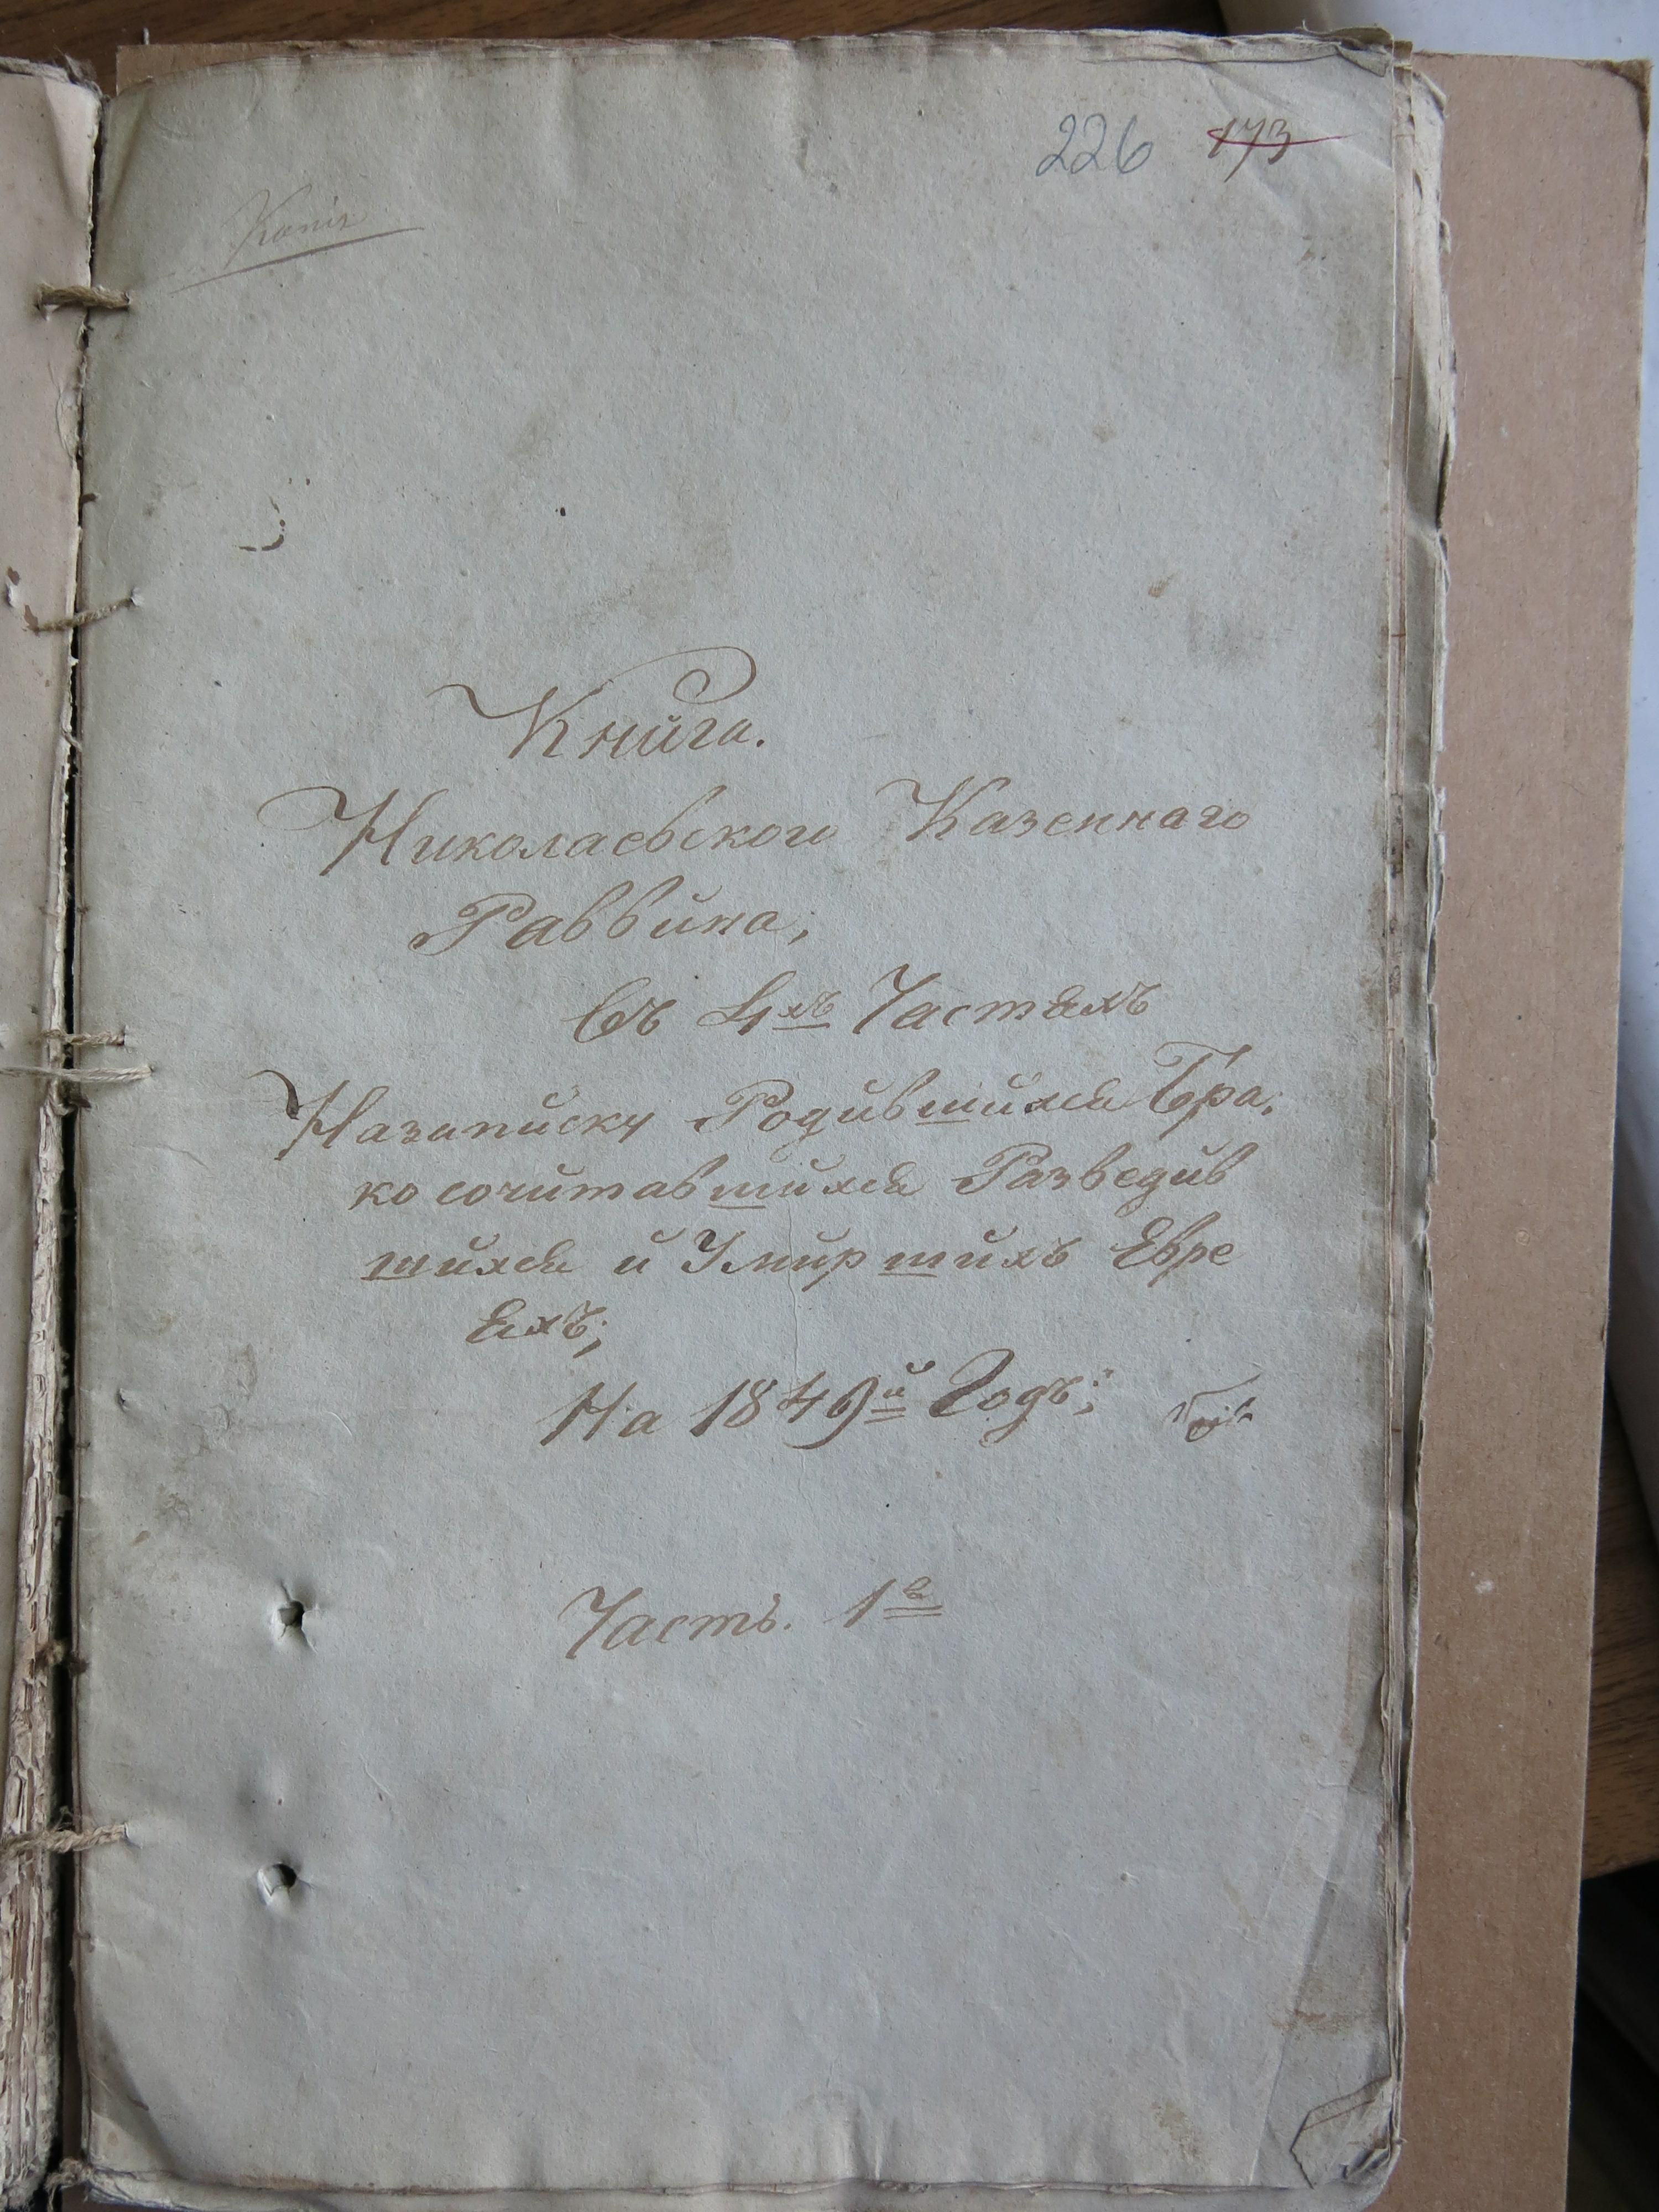 226 173
Копія
Книга.
Николаевского Казеннаго
Раввина,
въ 4хъ Частяхъ
Назаписку Родившихся Бра,
косочитавшихся Разведив
шихся и Умиршихъ Евре
яхъ;
На 1849й Годъ;
Часть. 1я